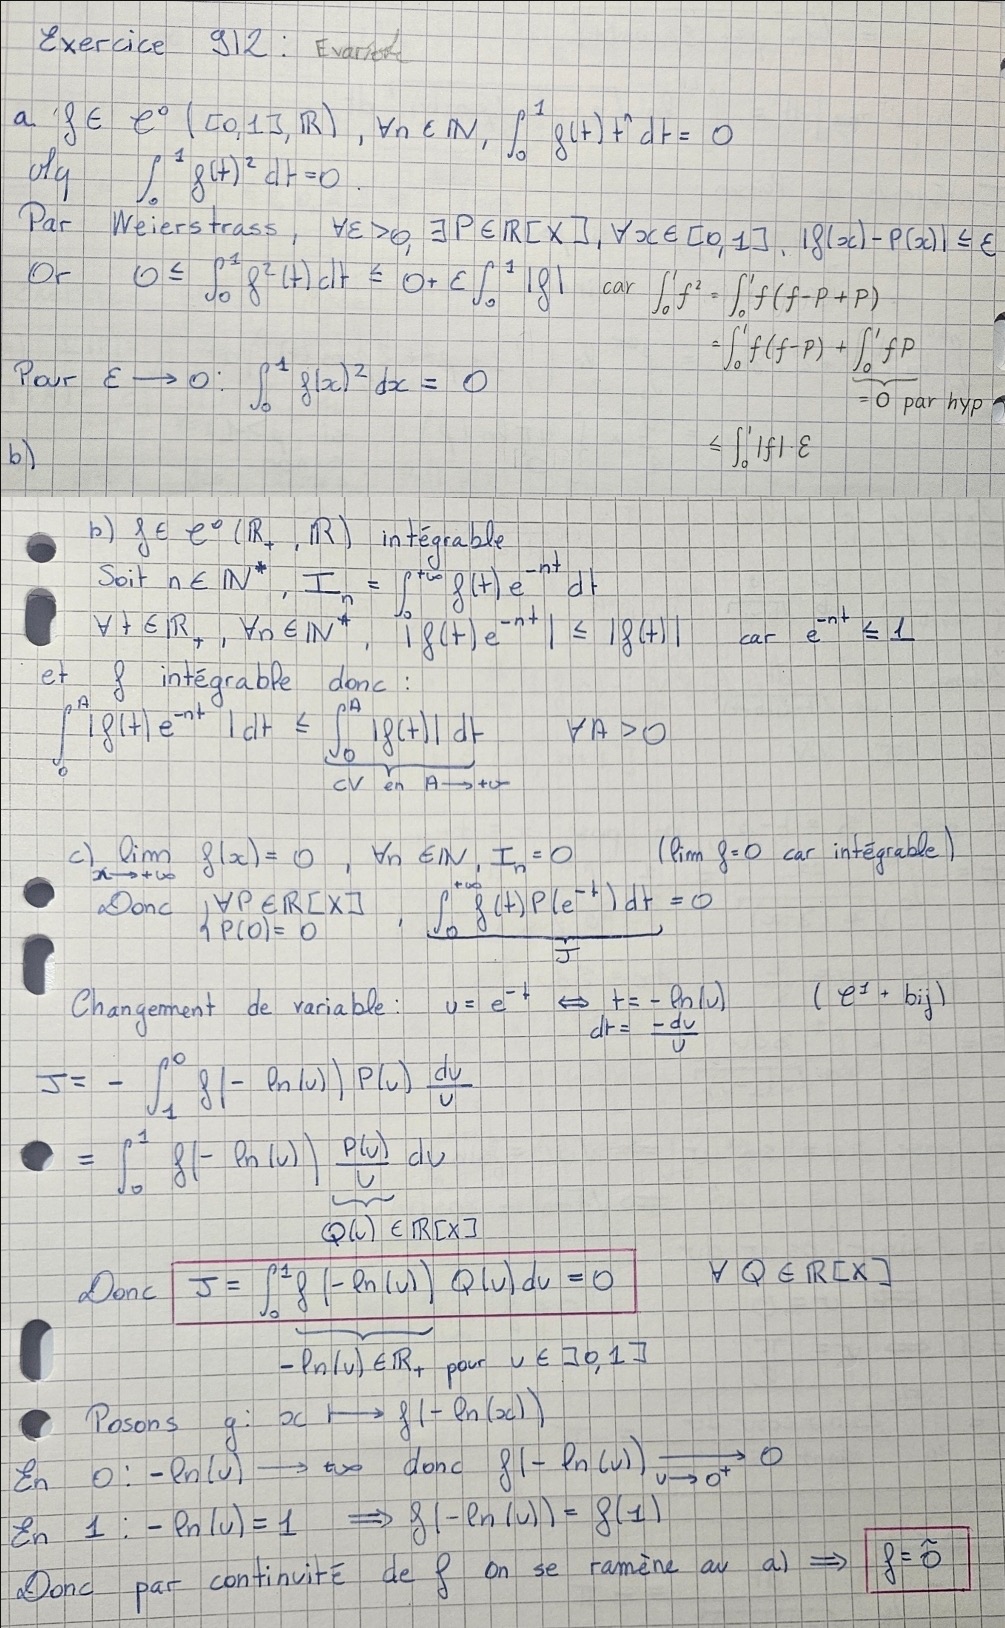 Exercice 912 : Evariste
a. f ∈ C⁰([0,1], ℝ), ∀n ∈ ℕ, ∫₀¹ f(t) tⁿ dt = 0
Mq ∫₀¹ f(t)² dt = 0.
Par Weierstrass, ∀ε > 0, ∃P ∈ ℝ[X], ∀x ∈ [0,1], |f(x) - P(x)| ≤ ε
Or 0 ≤ ∫₀¹ f²(t) dt ≤ 0 + ε ∫₀¹ |f| car ∫₀¹ f² = ∫₀¹ f(f-P+P)
= ∫₀¹ f(f-P) + ∫₀¹ fP
= 0 par hyp
Pour ε → 0 : ∫₀¹ f(x)² dx = 0
≤ ∫₀¹ |f| · ε
b)
b) f ∈ C⁰(ℝ₊, ℝ) intégrable
Soit n ∈ ℕ*, Iₙ = ∫₀^{+∞} f(t) e^{-nt} dt
∀t ∈ ℝ₊, ∀n ∈ ℕ*, |f(t) e^{-nt}| ≤ |f(t)| car e^{-nt} ≤ 1
et f intégrable donc :
∫₀^A |f(t) e^{-nt}| dt ≤ ∫₀^A |f(t)| dt ∀A > 0
CV en A → +∞
c) lim_{x→+∞} f(x) = 0, ∀n ∈ ℕ, Iₙ = 0 (lim f = 0 car intégrable)
Donc, ∀P ∈ ℝ[X], ∫₀^{+∞} f(t) P(e^{-t}) dt = 0
P(0) = 0
J
Changement de variable : u = e^{-t} ⇔ t = -ln(u) (C¹ + bij)
dt = -du/u
J = - ∫₁⁰ f(-ln(u)) P(u) du/u
= ∫₀¹ f(-ln(u)) P(u)/u du
Q(u) ∈ ℝ[X]
Donc J = ∫₀¹ f(-ln(u)) Q(u) du = 0 ∀Q ∈ ℝ[X]
-ln(u) ∈ ℝ₊ pour u ∈ ]0,1]
Posons g : x ↦ f(-ln(x))
En 0 : -ln(u) → +∞ donc f(-ln(u)) →_{u→0⁺} 0
En 1 : -ln(u) = 1 ⟹ f(-ln(u)) = f(1)
Donc par continuité de f on se ramène au a) ⟹ f = õ